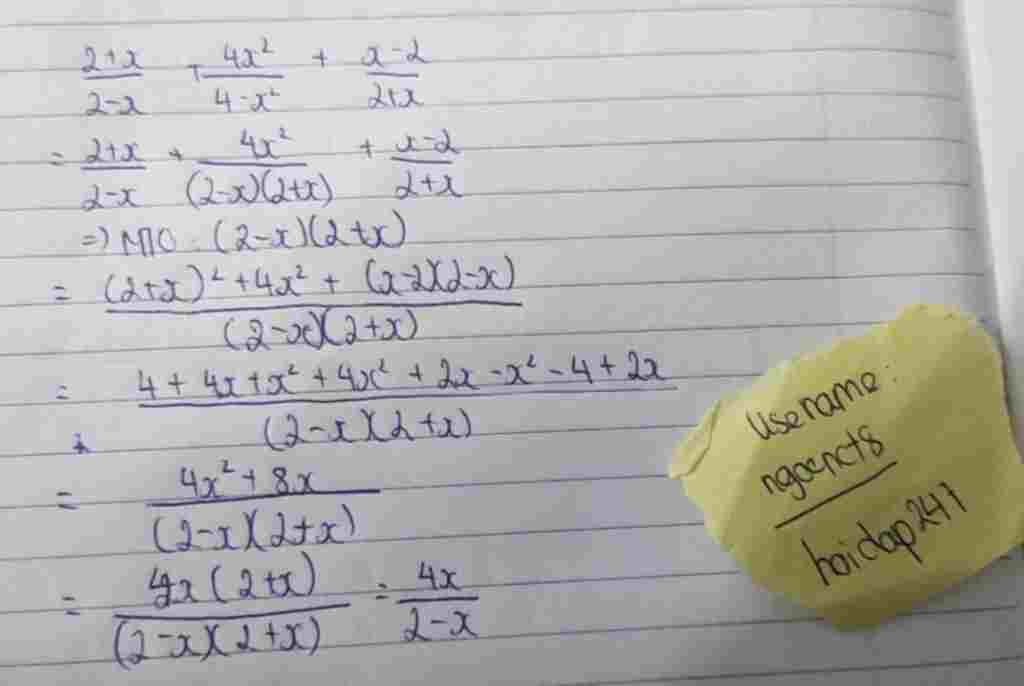 2+x/2-x + 4x²/4-x² + x-2/2+x
= 2+x/2-x + 4x²/(2-x)(2+x) + x-2/2+x
=) MTC: (2-x)(2+x)
= (2+x)² + 4x² + (x-2)(2-x)/(2-x)(2+x)
= 4 + 4x + x² + 4x² + 2x - x² - 4 + 2x/(2-x)(2+x)
= 4x² + 8x/(2-x)(2+x)
= 4x(2+x)/(2-x)(2+x) = 4x/2-x
Username:
ngocnct8
hoidap247